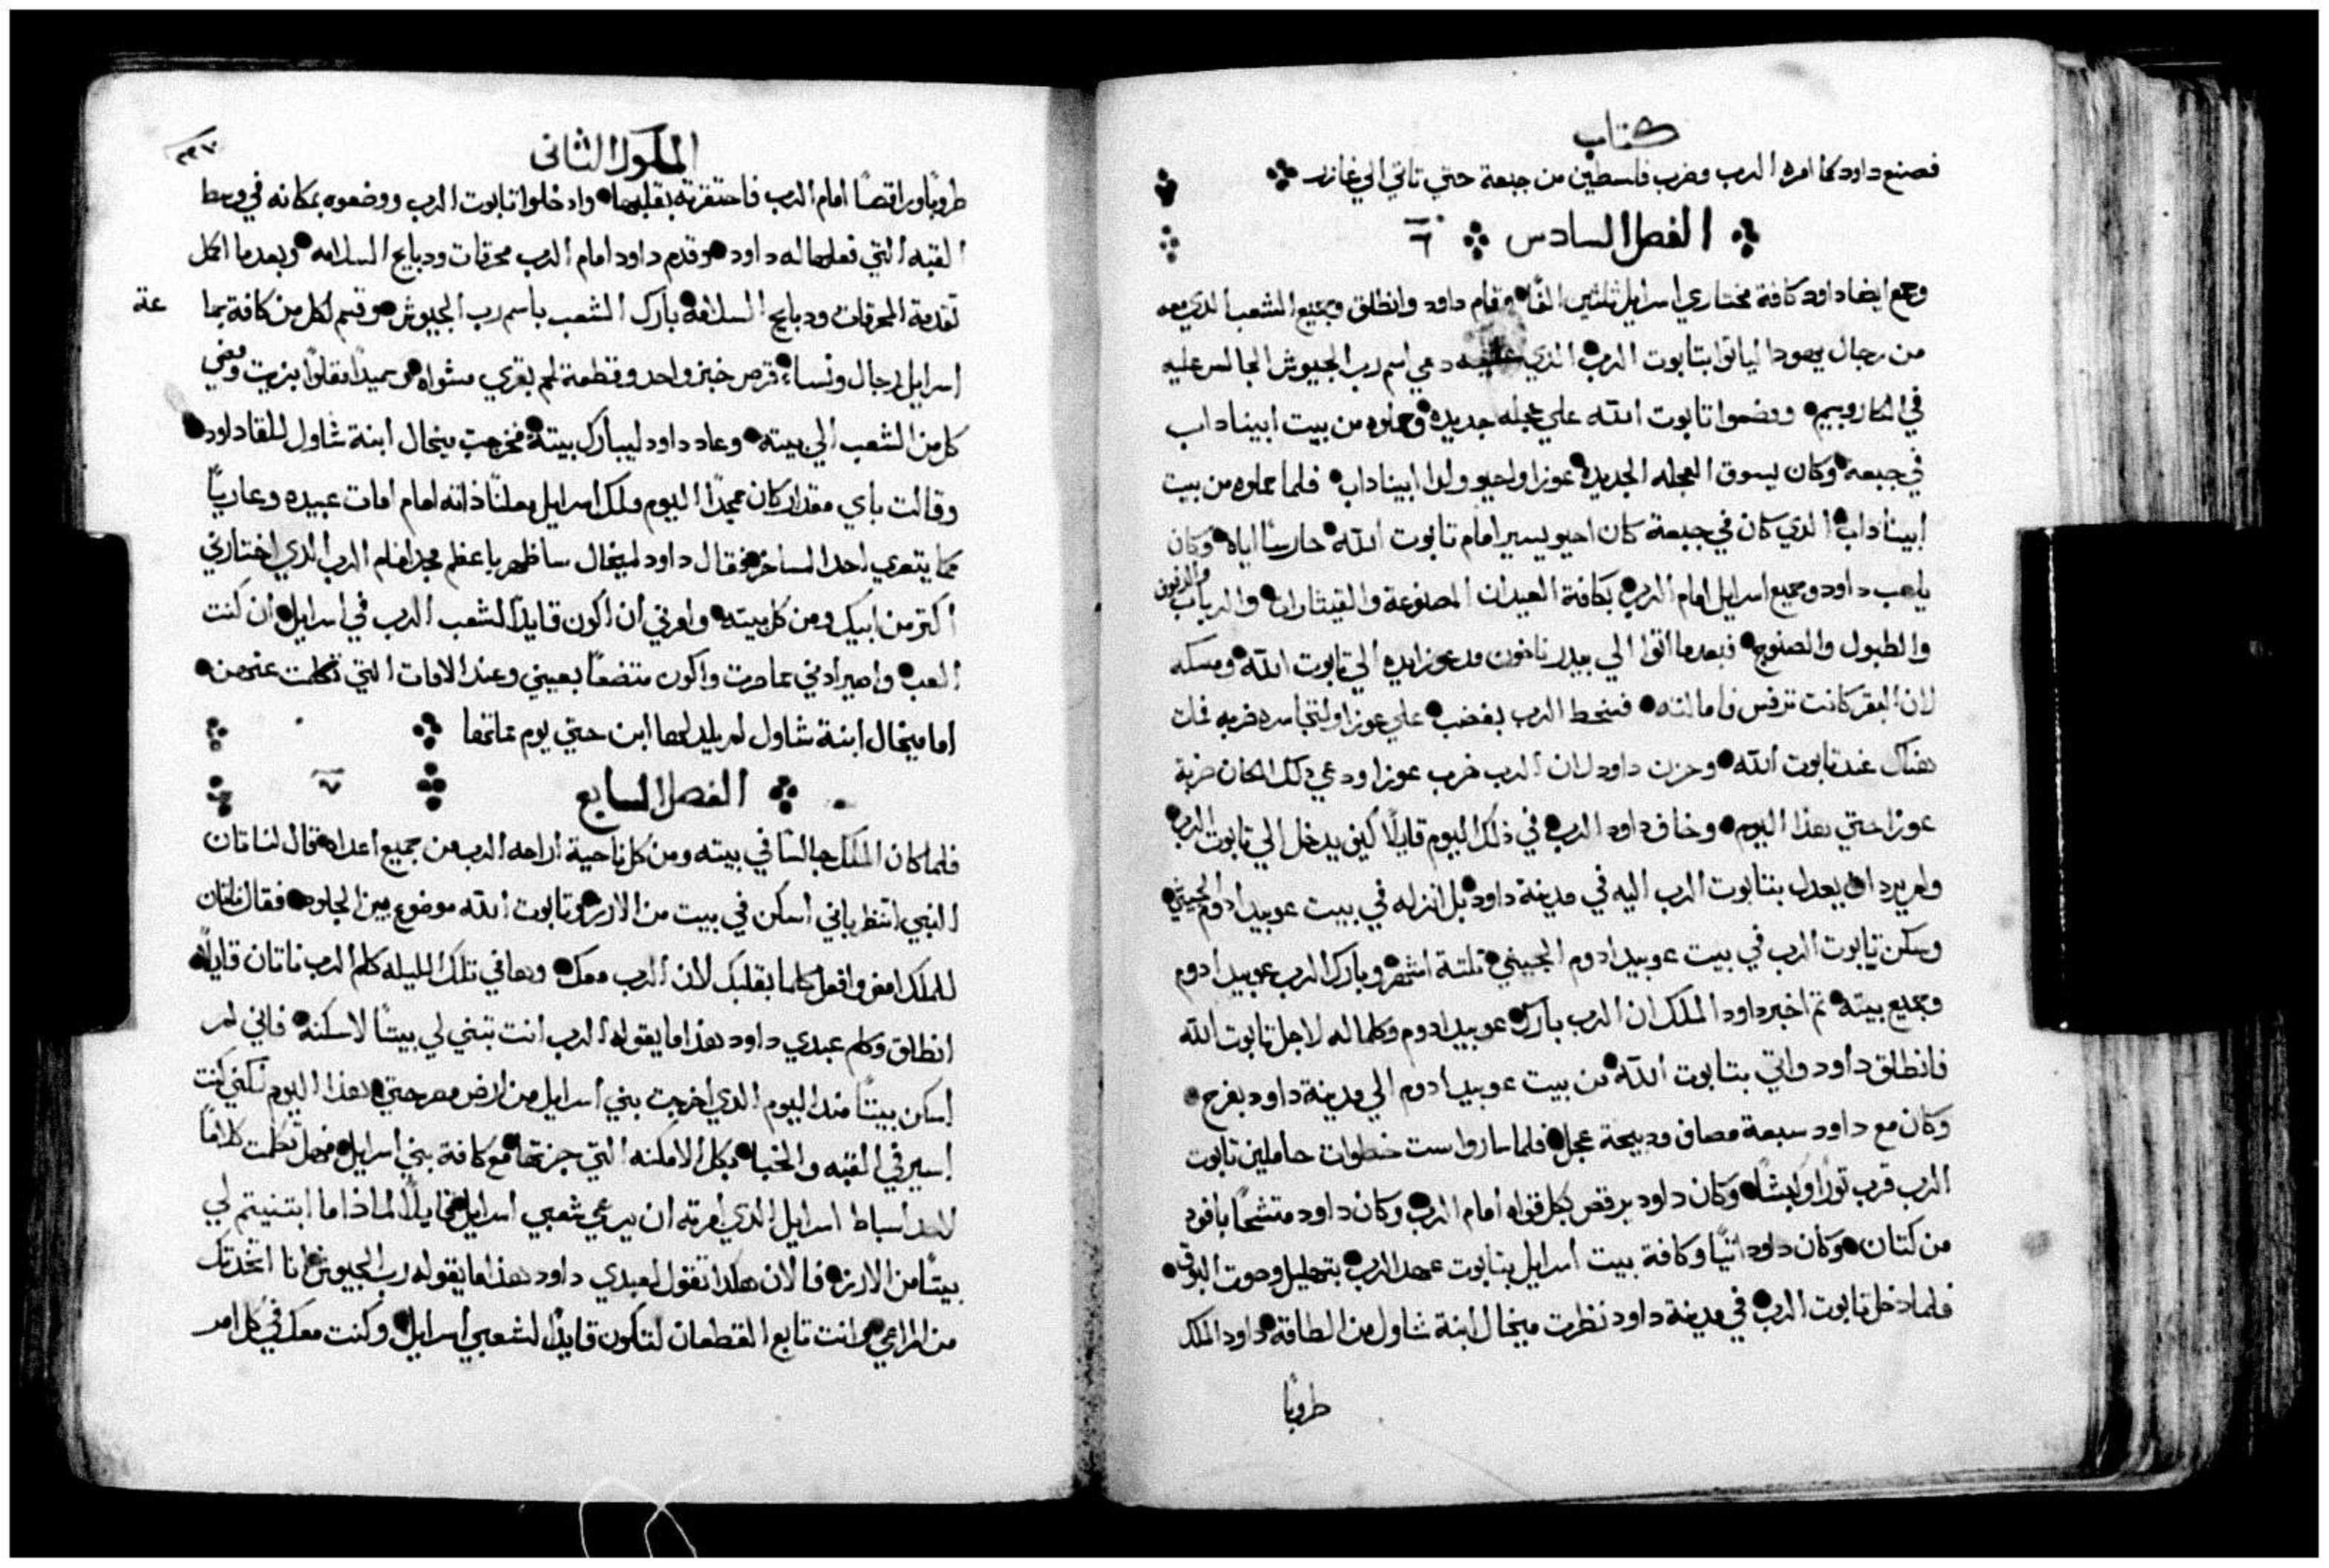 كتاب
فصنع داود كما امره الرب وضرب فلسطين من جبعة حتي تاتي الي غازر
الفصل السادس ٦
وجمع ايضا داود كافة مختاري اسرايل ثلثين الفًا وقام داود وانطلق وجميع الشعب الذي معه
من رجال يهودا لياتوا بتابوت الرب الذي عليه دعي اسم رب الجيوش الجالس عليه
في الكاروبيم ووضعوا تابوت الله علي عجله جديده وحملوه من بيت ابيناداب
في جبعة وكان يسوق العجله الجديده عوزا واحيو ولدا ابيناداب فلما حملوه من بيت
ابيناداب الذي كان في جبعة كان احيو يسير امام تابوت الله حارسًا اياه وكان
يلعب داود وجميع اسرايل امام الرب بكافة العيدان المصنوعة والقيثارات والرباب والدفوف
والطبول والصنوج فبعدما اتوا الي بيدر ناخون مد عوزا يده الي تابوت الله ومسكه
لان البقر كانت ترفس فامالته فسخط الرب بغضب علي عوزا ولتجاسره ضربه فمات
هناك عند تابوت الله وحزن داود لان الرب ضرب عوزا ودعي ذلك المكان ضربة
عوزا حتي هذا اليوم وخاف داود الرب في ذلك اليوم قايلًا كيف يدخل الي تابوت الرب
ولم يرد ان يعدل بتابوت الرب اليه في مدينة داود بل انزله في بيت عوبيد ادوم الجيتي
وسكن تابوت الرب في بيت عوبيد ادوم الجيتي ثلثة اشهر وبارك الرب عوبيد ادوم
وجميع بيته ثم اخبر داود الملك ان الرب بارك عوبيد ادوم وكلما له لاجل تابوت الله
فانطلق داود واتي بتابوت الله من بيت عوبيد ادوم الي مدينة داود بفرح
وكان مع داود سبعة مصاف ودبيحة عجل فلما ساروا ست خطوات حاملين تابوت
الرب قرب تورًا وكبشًا وكان داود يرقص بكل قواه امام الرب وكان داود متشحًا بافود
من كتان وكان داود اتيًا وكافة بيت اسرايل بتابوت عهد الرب بتهليل وصوت البوق
فلما دخل تابوت الرب في مدينة داود نظرت ميخال ابنة شاول من الطاقة داود الملك
طروبًا
الملوك الثاني
٢٣٧
طروبًا وراقصًا امام الرب فاحتقرته بقلبها وادخلوا تابوت الرب ووضعوه بمكانه في وسط
القبه التي فعلها له داود وقدم داود امام الرب محرقات ودبايح السلامه وبعدما اكمل
تقدمة المحرقات ودبايح السلامة بارك الشعب باسم رب الجيوش وقسم لكل من كافة جما عة
اسرايل رجال ونساء قرص خبز واحد وقطعة لحم بقري مشواه وسميدًا مقلوًا بزيت ومضي
كل من الشعب الي بيته وعاد داود ليبارك بيته فخرجت ميخال ابنة شاول للقا داود
وقالت باي مقدار كان مجدًا اليوم ملك اسرايل معلنًا ذاته امام امات عبيده وعاريًا
كما يتعري احد المساخر فقال داود لميخال ساظهر باعظم مجد امام الرب الذي اختارني
اكتر من ابيك ومن كل بيته وامرني ان اكون قايدًا لشعب الرب في اسرايل ان كنت
العب واصير ادني عما صرت واكون متضعًا بعيني وعند الامات التي تكلمت عنهن
اما ميخال ابنة شاول لم يلد لها ابن حتي يوم مماتها
الفصل السابع ٧
فلما كان الملك جالسًا في بيته ومن كل ناحية اراحه الرب من جميع اعداه قال لناتان
النبي انتظر باني اسكن في بيت من الارز وتابوت الله موضوع بين الجلود فقال ناتان
للملك امض وافعل كلما بقلبك لان الرب معك وها في تلك الليله كلم الرب ناتان قايلًا
انطلق وكلم عبدي داود هذا ما يقوله الرب انت تبني لي بيتًا لاسكنه فاني لم
اسكن بيتًا مند اليوم الذي اخرجت بني اسرايل من ارض مصر حتي هذا اليوم لكني كنت
اسير في القبه والخبا بكل الامكنه التي جزتها مع كافة بني اسرايل فهل تكلمت كلامًا
لاحد اسباط اسرايل الذي امرته ان يرعي شعبي اسرايل قايلًا لماذا ما ابتنيتم لي
بيتًا من الارز فالان هكدا تقول لعبدي داود هذا ما يقوله رب الجيوش انا اتخدتك
من المراعي وانت تابع القطعان لتكون قايدًا لشعبي اسرايل وكنت معك في كل امر